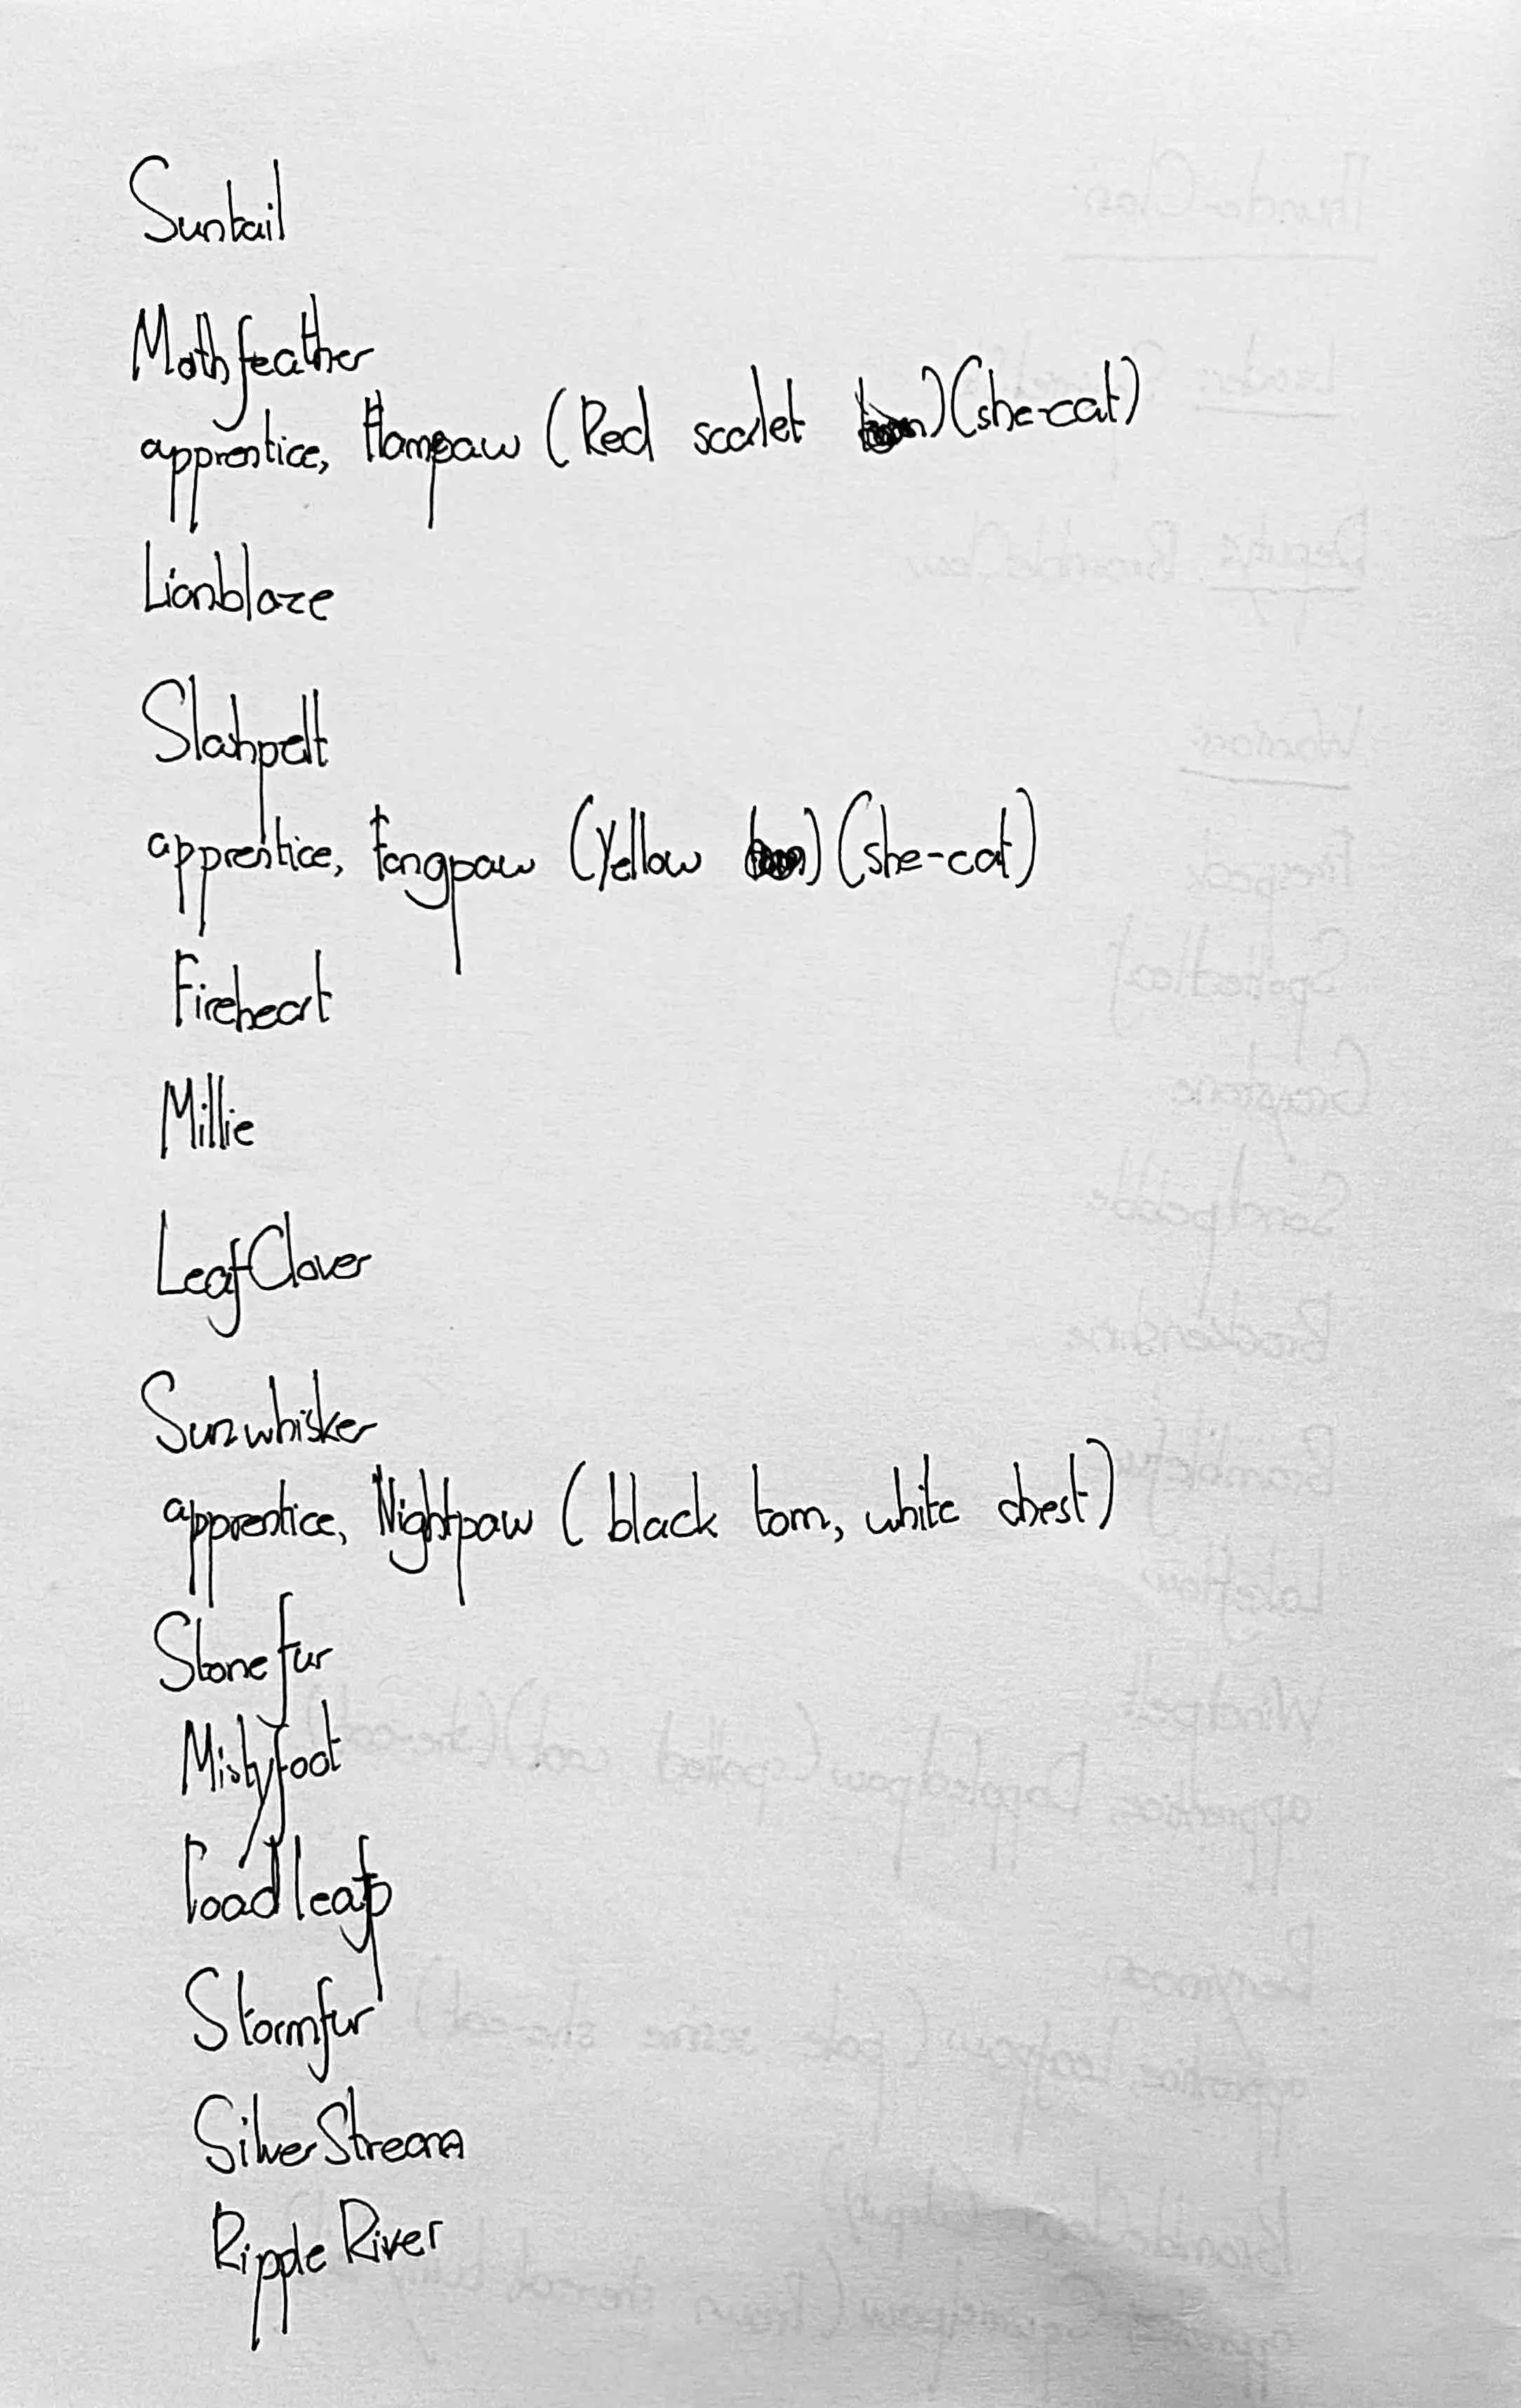 Suntail
Mothfeather
apprentice, Flamepaw (Red scarlet) (she-cat)
Lionblaze
Slahpelt
apprentice, Fangpaw (Yellow) (she-cat)
Fireheart
Millie
LeafClover
Sunwhisker
apprentice, Nightpaw (black tom, white chest)
Stonefur
Mistyfoot
Toadleap
Stormfur
SilverStream
Ripple River